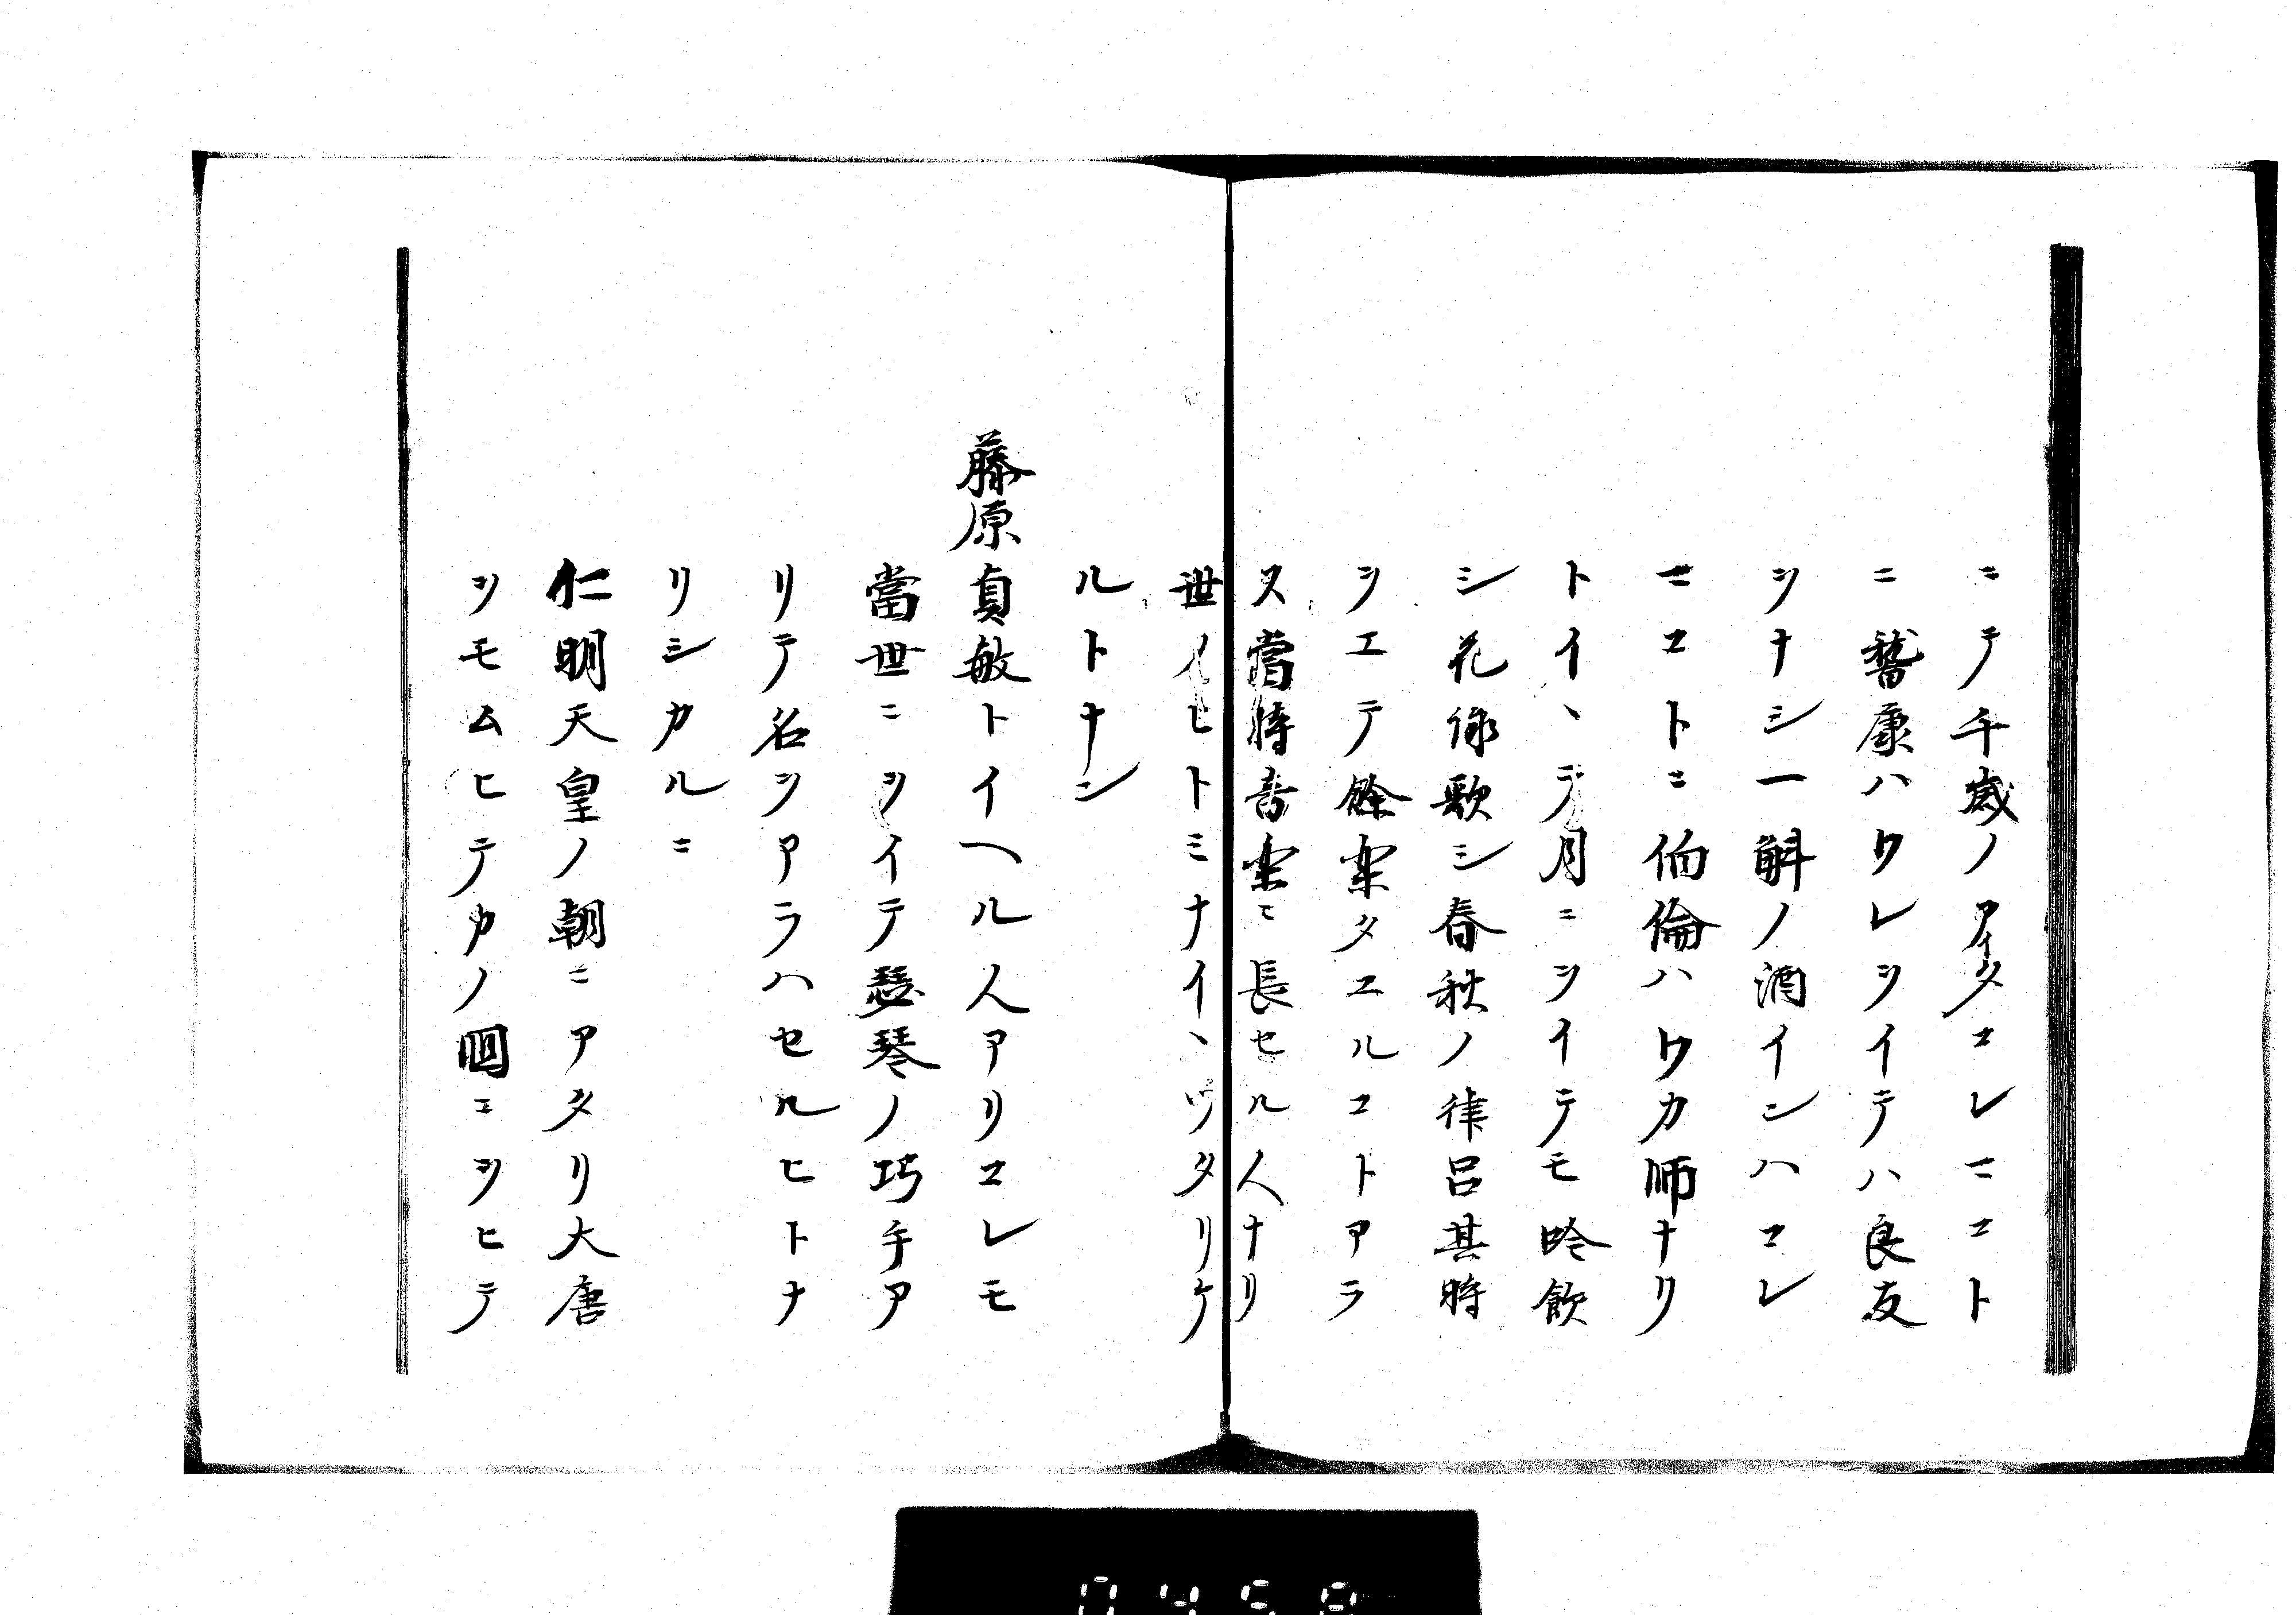 ニテ千歳ノアイタコレマコト
ニ嵆康ハワレヲイテハ良友
ヲナシ一斛ノ酒インハコレ
マコトニ伯倫ハワカ師ナリ
トイヽテ月ニヲイテモ吟飲
シ花詠歌シ春秋ノ律呂其時
ヲエテ餘楽タエルコトアラ
ス當時音楽ニ長セル人ナリ
世イヒトミナイヽツタリケ
ルトナン
藤原貞敏トイヘル人アリコレモ
當世ニヲイテ琵琴ノ巧手ア
リテ名ヲアラハセルヒトナ
リシカルニ
仁明天皇ノ朝ニアタリ大唐
ヲモムヒテカノ國ニヲヒテ
0458